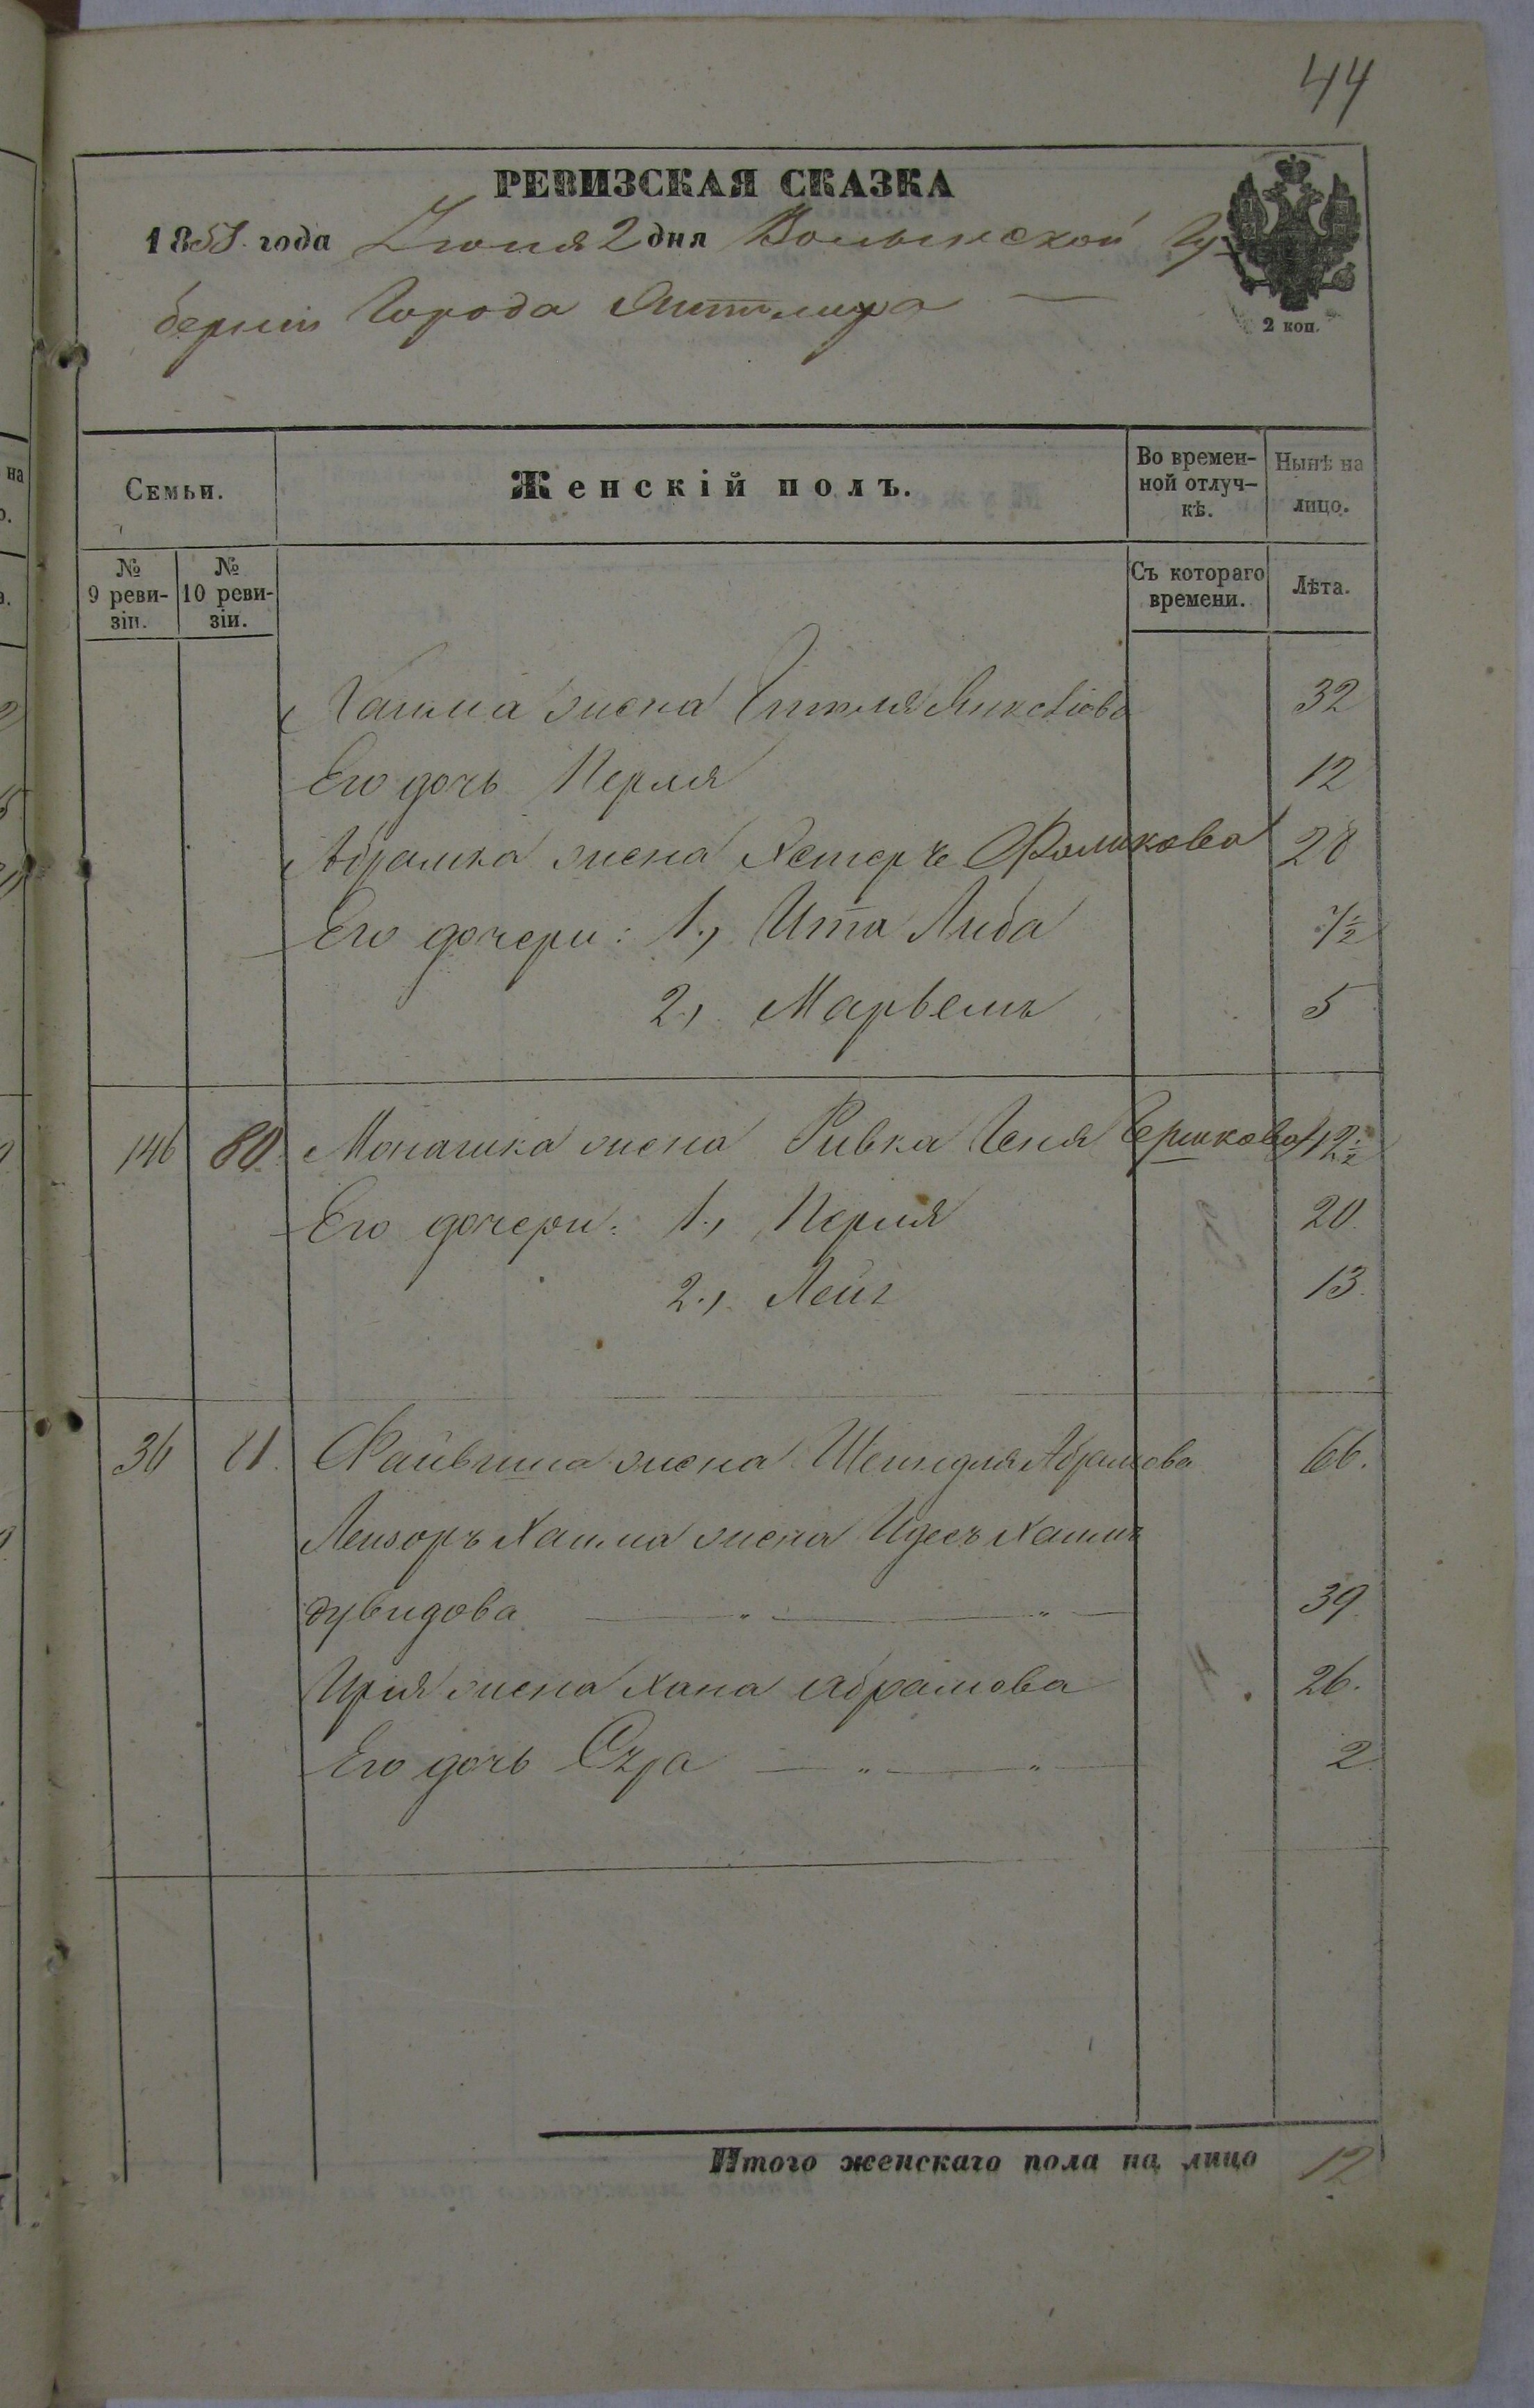 44
РЕВИЗСКАЯ СКАЗКА
1858 года Іюня 2 дня Волынской Гу-
берніи Города Житомира
2 коп.
Семьи.
Женскій полъ.
Во времен-
ной отлуч-
кѣ.
Нынѣ на
лицо.
№
9 реви-
зіи.
№
10 реви-
зіи.
Съ котораго
времени.
Лѣта.
Хаима жена 32
Его дочь Перля 12
Абрамка жена Хестеръ Фоликова 28
Его дочери: 1., Ита Либа 7½
2., Марьемъ 5
146 80. Монашка жена Ривка Геня Гершкова 42½
Его дочери: 1., Перля 20.
2., Лея 13.
36 81. Файвиша жена Шейндля Абрамова 66.
Лейзоръ Хаима жена Идесъ Хаимъ
дувидова 39.
Ирля жена Хана Абрамова 26.
Его дочь Сура 2
Итого женскаго пола на лицо 12